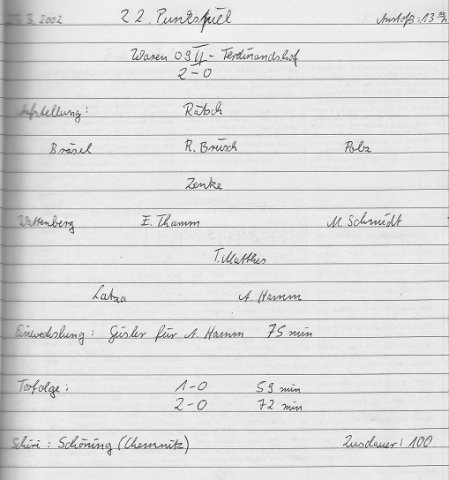 3.2002 22. Punktspiel Anstoß: 13 00
Waren 09 II - Ferdinandshof
2-0
Aufstellung: Rätsch
Bräsel R. Brüsch Polz
Zenke
Wittenberg E. Thamm M. Schmidt
T. Matthes
Latza A Hamm
Einwechslung: Güsler für A. Hamm 75 min
Torfolge: 1-0 59 min
2-0 72 min
Schiri: Schöning (Chemnitz) Zuschauer: 100